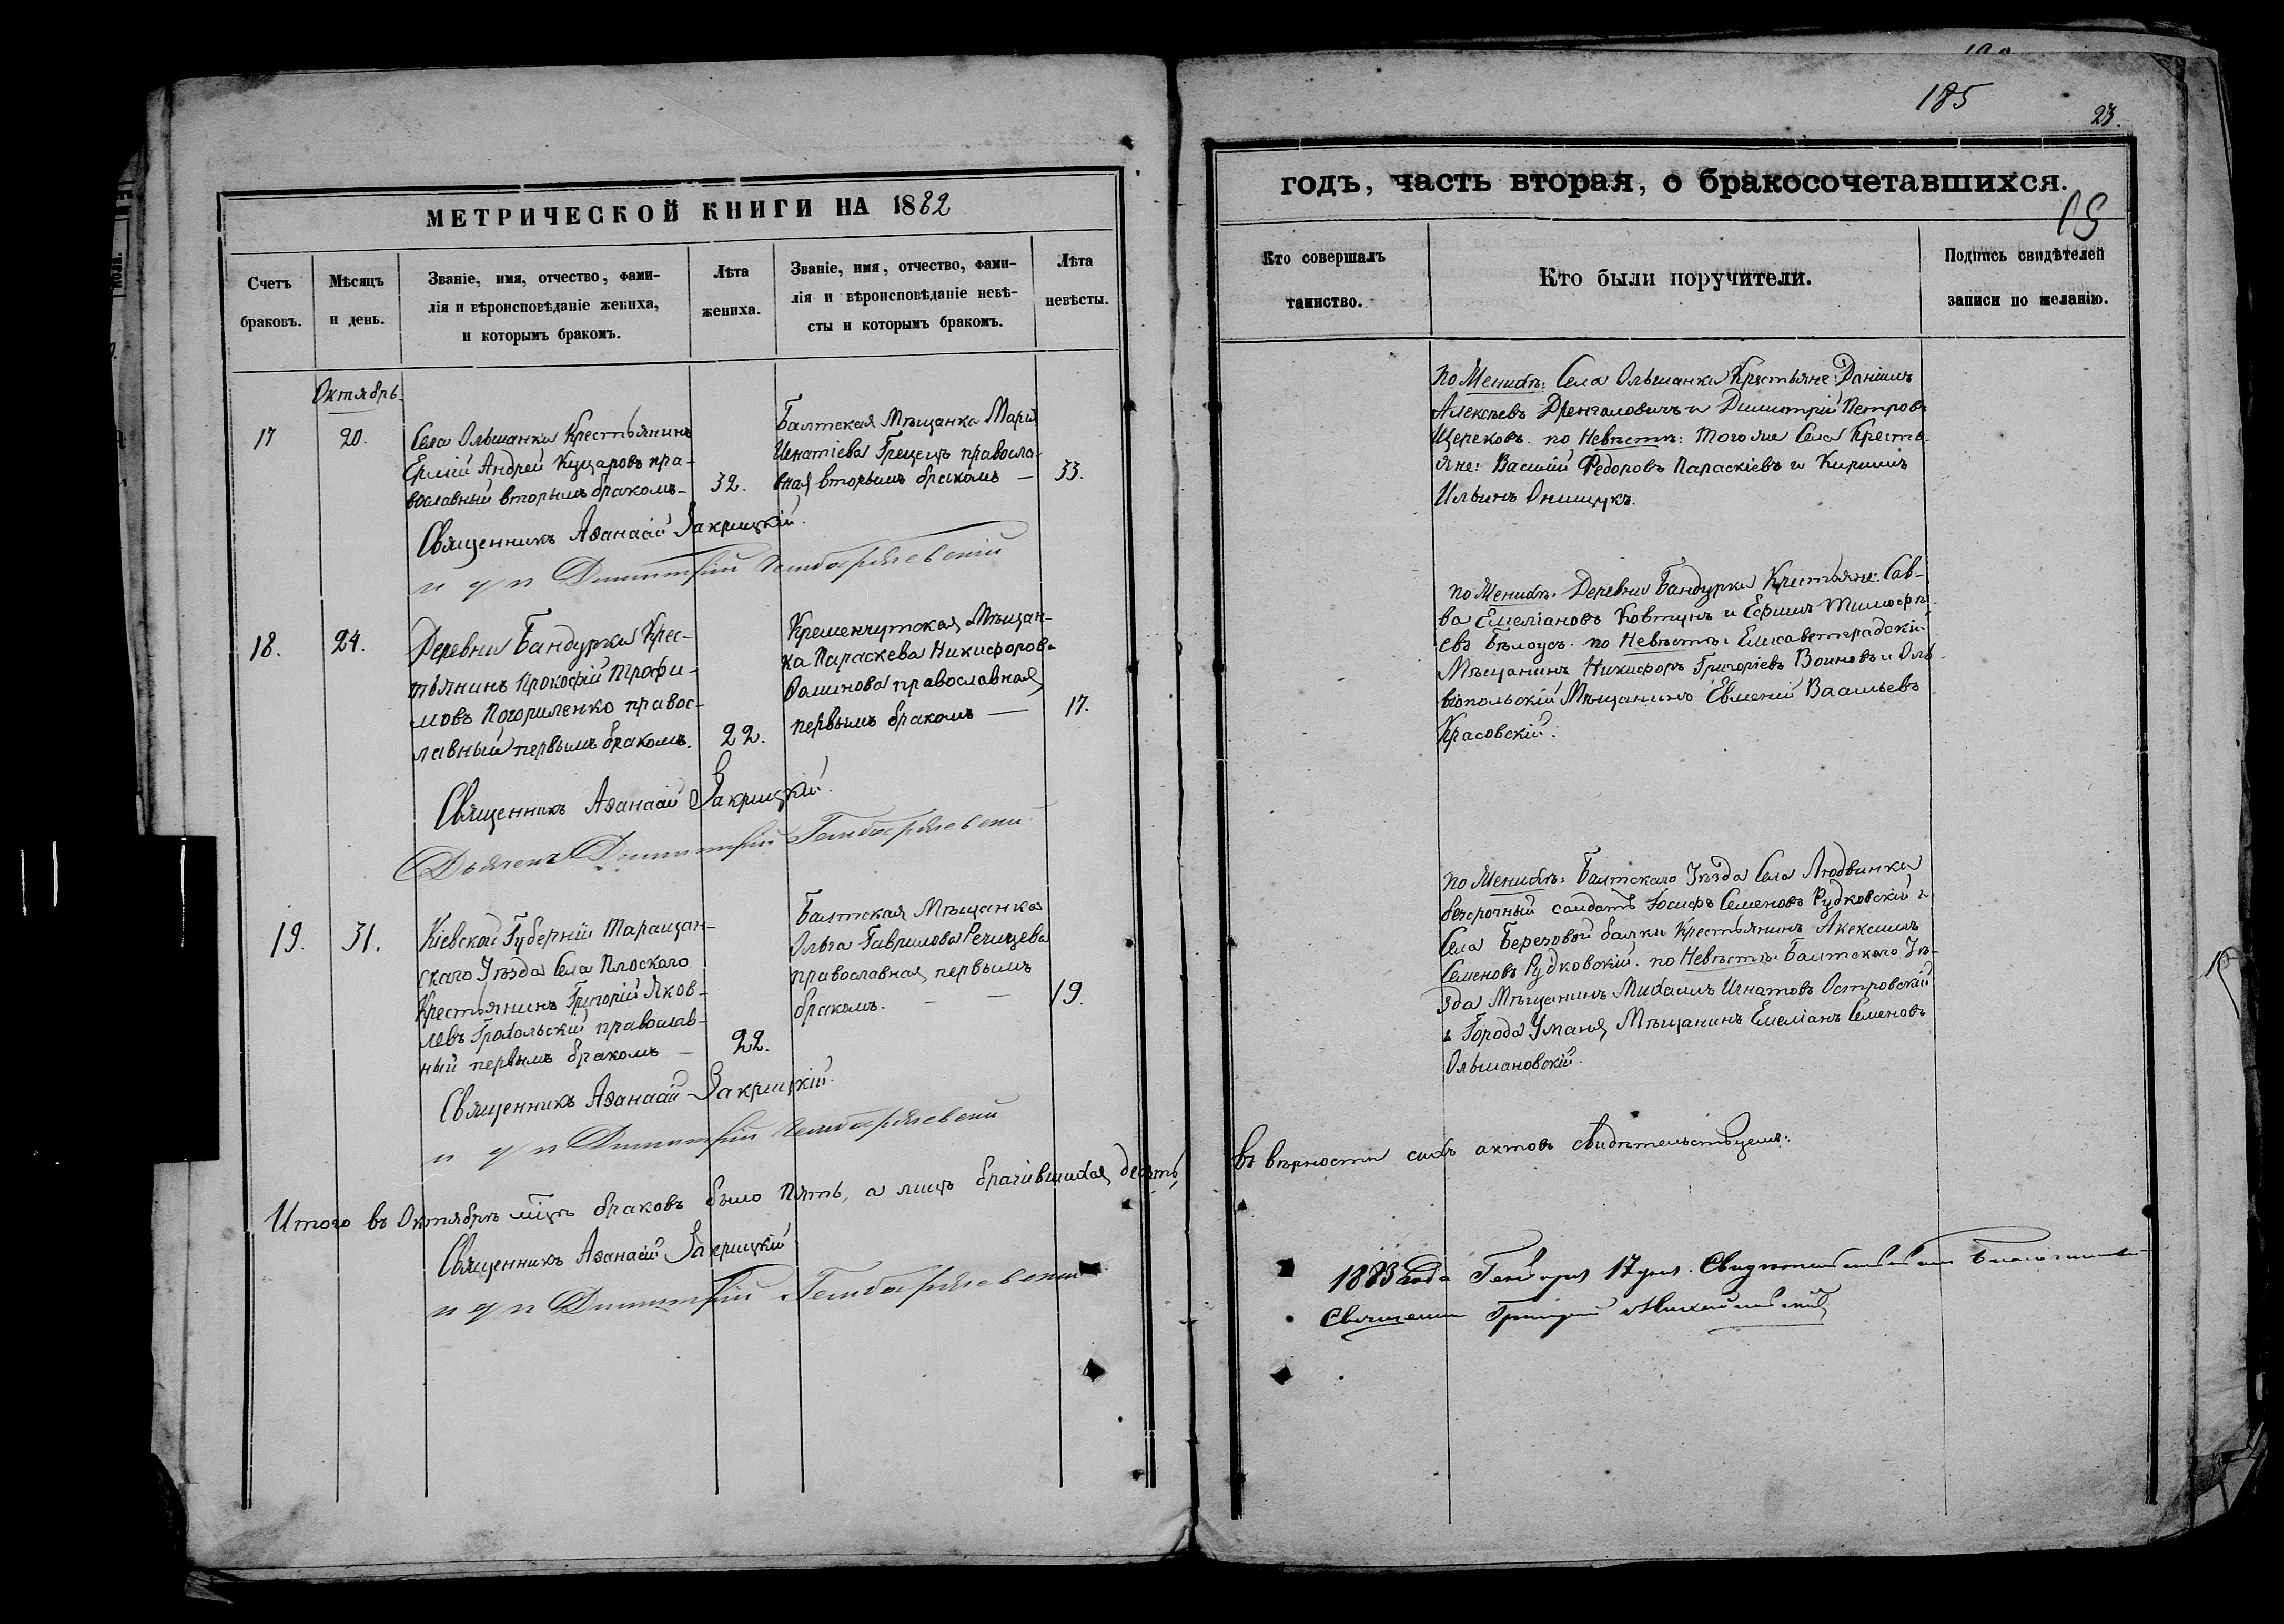 185
23.
МЕТРИЧЕСКОЙ КНИГИ НА 1882
Счетъ браковъ.
Мѣсяцъ и день.
Званіе, имя, отчество, фами-
лія и вѣроисповѣданіе жениха,
и которымъ бракомъ.
Лѣта жениха.
Званіе, имя, отчество, фами-
лія и вѣроисповѣданіе невѣ-
сты и которымъ бракомъ.
Лѣта невѣсты.
Октябрь.
17
20.
Села Ольшанки Крестьянинъ
Ермій Андрей Куцаровъ пра-
вославный вторымъ бракомъ-
32.
Балтская Мѣщанка Марія
Игнатіева Грецецъ правосла-
вная вторымъ бракомъ —
33.
Священникъ Аѳанасій Закрицкій.
и д п Димитрій
18.
24.
Деревни Бандурки Крес-
тьянинъ Прокофій Трофи-
мовъ Погориленко правос-
лавный первымъ бракомъ.
22.
Кременчугская Мѣщан-
ка Параскева Никифорова
Воинова православная
первымъ бракомъ —
17.
Священникъ Аѳанасій Закрицкій.
Дьячекъ Димитрій
19.
31.
Кіевской Губерніи Таращан-
скаго Уѣзда Села Плоскаго
Крестьянинъ Григорій Яков-
левъ Грабольскій православ-
ный первымъ бракомъ —
22.
Балтская Мѣщанка
Ольга Гаврилова Речицева
православная первымъ
бракомъ. — —
19.
Священникъ Аѳанасій Закрицкій.
и д п Димитрій
Итого въ Октябрѣ мцѣ браковъ было пять, а лицъ брачившихся десять,
Священникъ Аѳанасій Закрицкій
и д п Димитрій
годъ, часть вторая, о бракосочетавшихся.
Кто совершалъ таинство.
Кто были поручители.
Подпись свидѣтелей
записи по желанію.
по Женихѣ: Села Ольшанки Крестьяне: Даніилъ
Алексѣевъ Дренгаловичъ и Димитрій Петровъ
Щереховъ. по Невѣстѣ: тогоже Села Кресть-
яне: Василій Федоровъ Параскіевъ и Кириллъ
Ильинъ Онищукъ.
по Женихѣ. Деревни Бандурки Крестьяне: Сав-
ва Емеліановъ Ковтунъ и Ефимъ Тимофѣ-
евъ Бѣлоусъ. по Невѣстѣ: Елисаветградскій
Мѣщанинъ Никифоръ Григоріевъ Воиновъ и Оль-
віопольскій Мѣщанинъ Евменій Васильевъ
Красовскій.
по Женихѣ: Балтскаго Уѣзда Села Людвинки
безсрочный солдатъ Іосифъ Семеновъ Рудковскій и
Села Березовой балки Крестьянинъ Алексѣй
Семеновъ Рудковскій. по Невѣстѣ: Балтскаго Уѣ-
зда Мѣщанинъ Михаилъ Игнатовъ Островскій
и Города Уманя Мѣщанинъ Емеліанъ Семеновъ
Ольшановскій.
въ вѣрности сихъ актовъ свидѣтельствуемъ:
1883 года Генваря 17 дня.
Священникъ Григорій